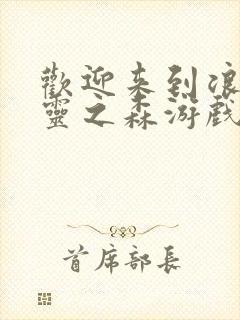 歡迎来到浪
靈之森游戲
首席部長